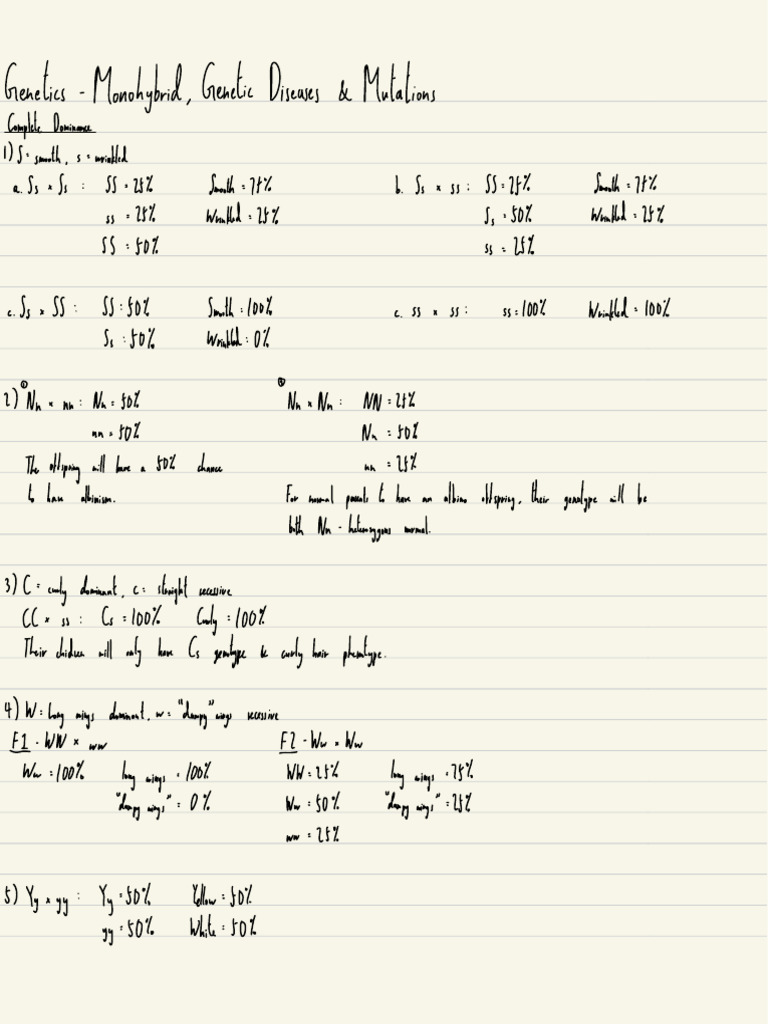 Genetics - Monohybrid, Genetic Diseases & Mutations
Complete Dominance
1) S = smooth, s = wrinkled
a. Ss x Ss : SS = 25% Smooth = 75%
ss = 25% Wrinkled = 25%
SS = 50%
b. Ss x ss : SS = 25% Smooth = 75%
Ss = 50% Wrinkled = 25%
ss = 25%
c. Ss x SS : SS = 50% Smooth = 100%
Ss = 50% Wrinkled = 0%
c. ss x ss : ss = 100% Wrinkled = 100%
2) ① Nn x nn : Nn = 50%
nn = 50%
The offspring will have a 50% chance
to have albinism.
② Nn x Nn : NN = 25%
Nn = 50%
nn = 25%
For normal parents to have an albino offspring, their genotype will be
both Nn - heterozygous normal.
3) C = curly dominant, c = straight recessive
CC x ss : Cs = 100% Curly = 100%
Their chidren will only have Cs genotype & curly hair phenotype.
4) W = Long wings dominant, w = "dumpy" wings recessive
F1 - WW x ww
Ww = 100% long wings = 100%
"dumpy wings" = 0%
F2 - Ww x Ww
WW = 25% long wings = 75%
Ww = 50% "dumpy wings" = 25%
ww = 25%
5) Yy x yy : Yy = 50% Yellow = 50%
yy = 50% White = 50%